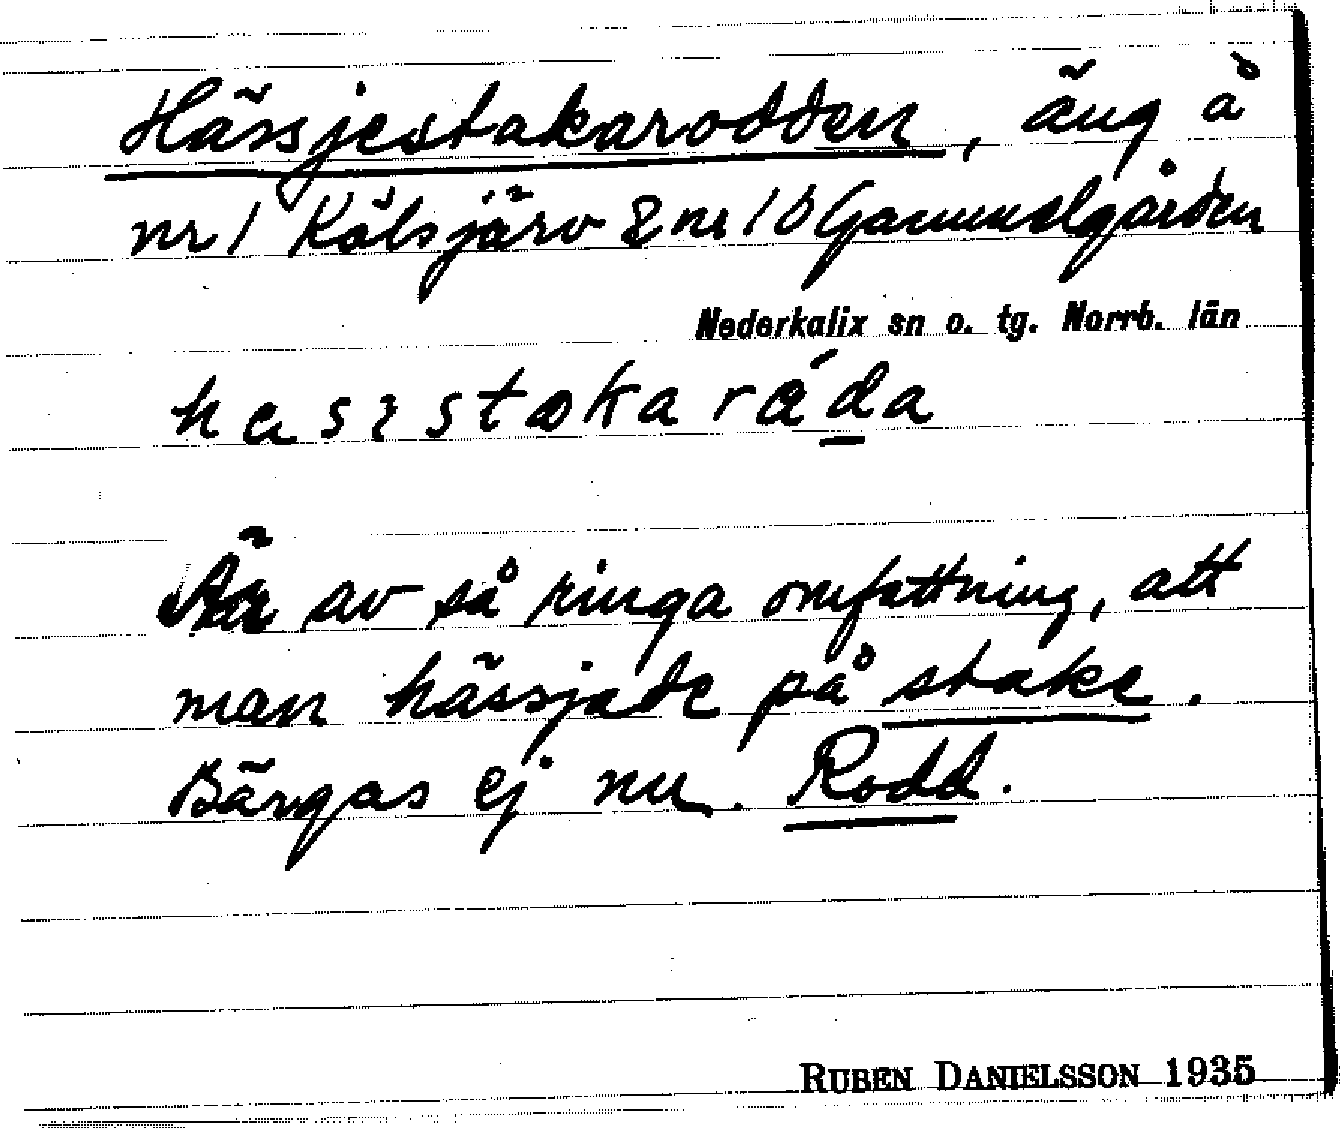 Hässjestakarodden, äng å
nr 1 Kölsjärv & nr 10 Gammelgården
Nederkalix sn o. tg. Norrb. län
hasistakaráda
Är av så ringa omfattning, att
man hässjade på stake.
Bärgas ej nu. Rodd.
RUBEN DANIELSSON 1935